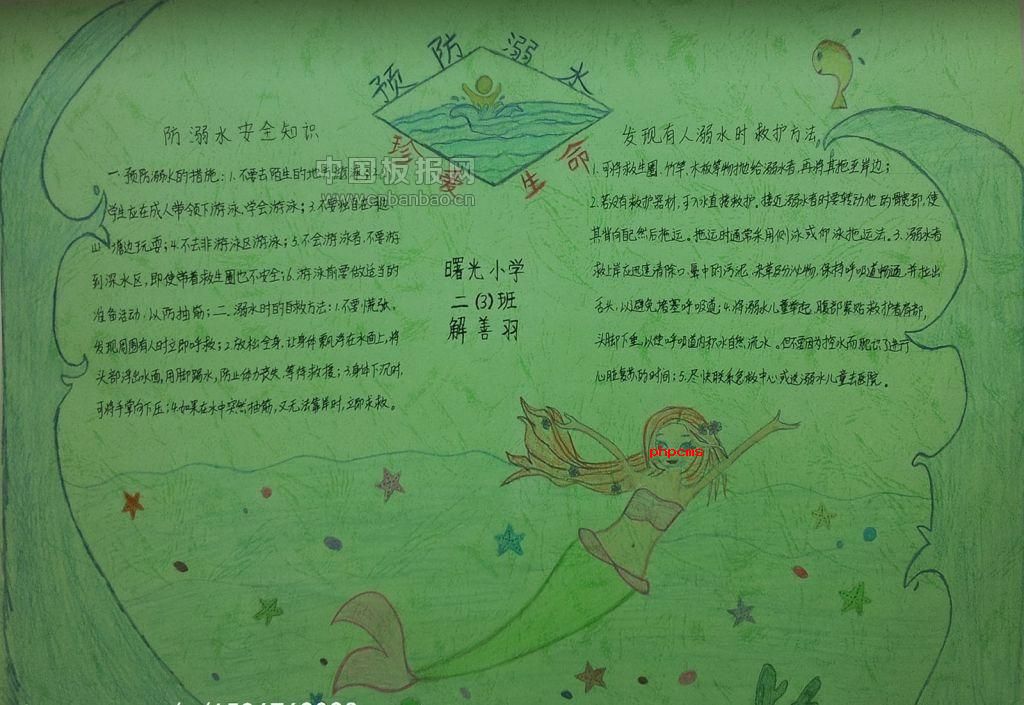 预防溺水
珍爱生命
防溺水安全知识
一.预防溺水的措施:1.不要去陌生的地
学生应在成人带领下游泳,学会游泳;3.不要独自在
塘边玩耍;4.不去非游泳区游泳;5.不会游泳者,不要游
到深水区,即使带着救生圈也不安全;6.游泳前要做适当的
准备活动,以防抽筋;二.溺水时的自救方法:1.不要慌张,
发现周围有人时立即呼救;2.放松全身,让身体飘浮在水面上,将
头部浮出水面,用脚踢水,防止体力丧失,等待救援;3.身体下沉时,
可将手掌向下压;4.如果在水中突然抽筋,又无法靠岸时,立即求救。
曙光小学
二(3)班
解善羽
发现有人溺水时救护方法,
1.可将救生圈、竹竿、木板等物抛给溺水者,再将其拖至岸边;
2.若没有救护器材,可入水直接救护。接近溺水者时要转动他的髋部,使
其背向自己然后拖运。拖运时通常采用侧泳或仰泳拖运法。3.溺水者
救上岸后迅速清除口、鼻中的污泥、杂草及分泌物,保持呼吸道畅通,并拉出
舌头,以避免堵塞呼吸道;4.将溺水儿童举起,腹部紧贴救护者肩部,
头脚下垂,以使呼吸道内积水自然流水。但不要因为控水而耽误了进行
心脏复苏的时间;5.尽快联系急救中心或送溺水儿童去医院。
中国板报网
www.cnbanbao.cn
phpcms